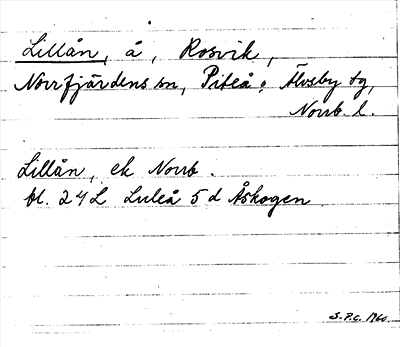 Lillån, å, Rosvik,
Norrfjärdens sn, Piteå o. Älvsby tg,
Norrb. l.
Lillån, ek Norrb.
bl. 24L Luleå 5 d Åskogen
S.P.C. 1960.